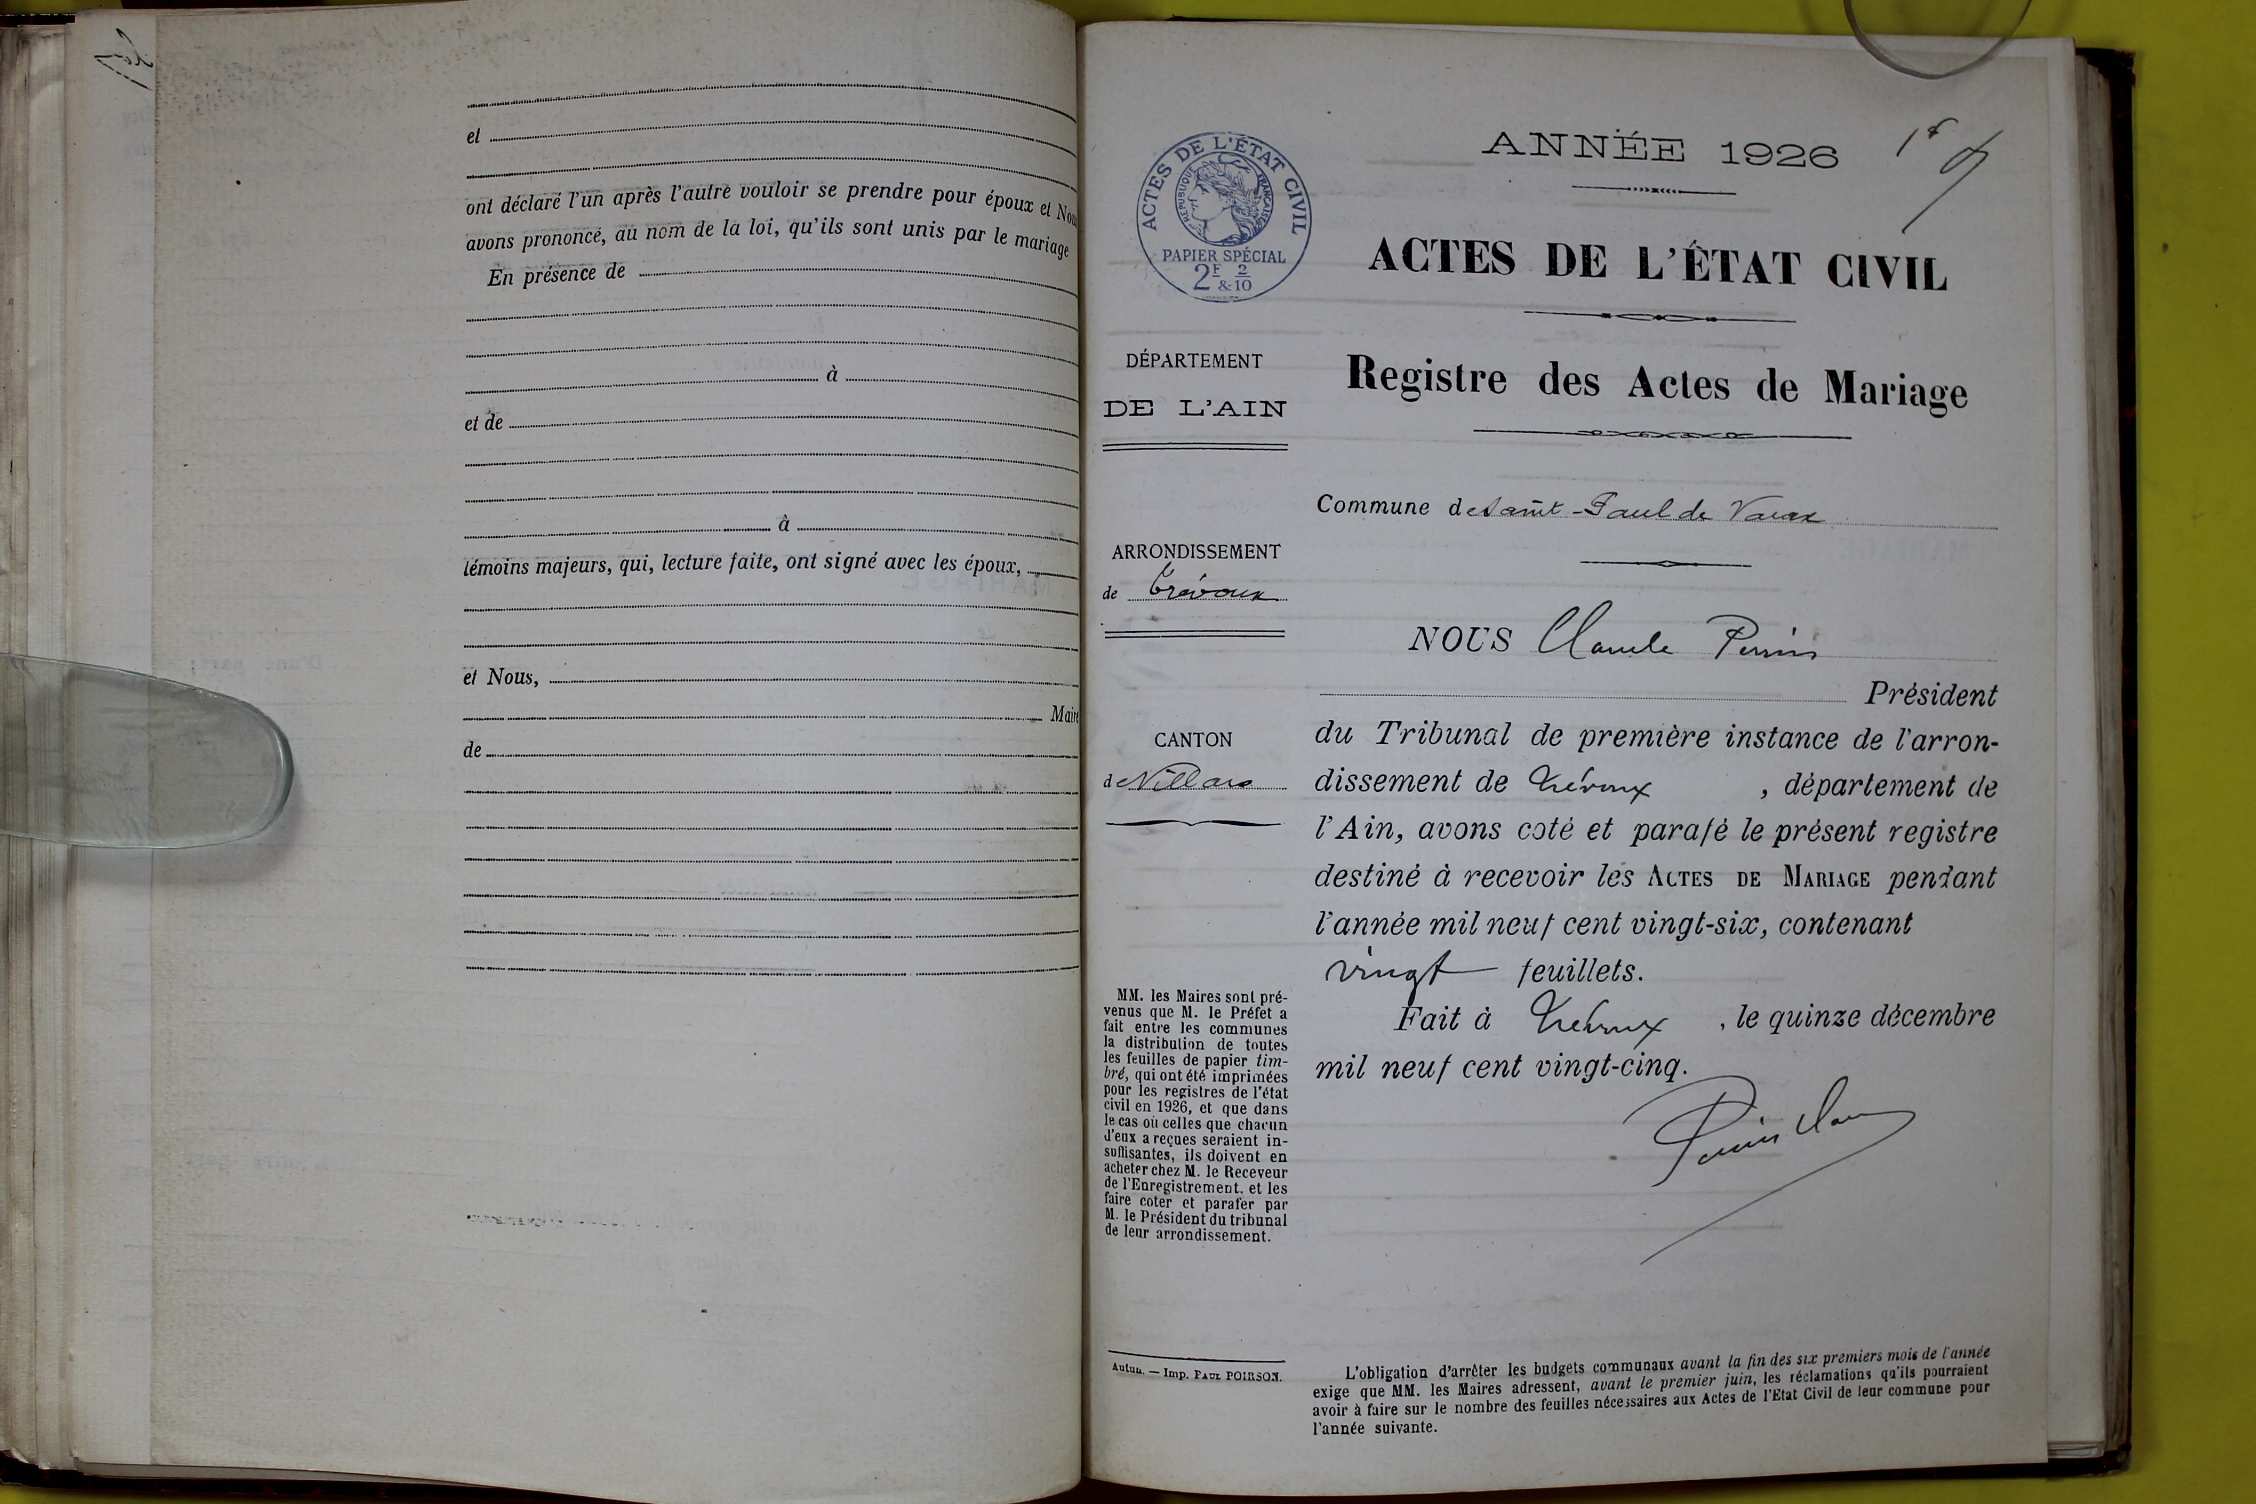 et
ont déclaré l'un après l'autre vouloir se prendre pour époux et Nous
avons prononcé, au nom de la loi, qu'ils sont unis par le mariage
En présence de
à
et de
à
témoins majeurs, qui, lecture faite, ont signé avec les époux,
et Nous,
Maire
de
ANNÉE 1926
ACTES DE L'ÉTAT CIVIL
RÉPUBLIQUE FRANÇAISE
PAPIER SPÉCIAL
2F & 2/10
ACTES DE L'ÉTAT CIVIL
Registre des Actes de Mariage
DÉPARTEMENT
DE L'AIN
ARRONDISSEMENT
de Trévoux
CANTON
de Villars
MM. les Maires sont pré-
venus que M. le Préfet a
fait entre les communes
la distribution de toutes
les feuilles de papier tim-
bré, qui ont été imprimées
pour les registres de l'état
civil en 1926, et que dans
le cas où celles que chacun
d'eux a reçues seraient in-
suffisantes, ils doivent en
acheter chez M. le Receveur
de l'Enregistrement, et les
faire coter et parafer par
M. le Président du tribunal
de leur arrondissement.
Autun. — Imp. PAUL POIRSON.
Commune de Saint-Paul de Varax
NOUS Claude Perrin
Président
du Tribunal de première instance de l'arron-
dissement de Trévoux, département de
l'Ain, avons coté et parafé le présent registre
destiné à recevoir les ACTES DE MARIAGE pendant
l'année mil neuf cent vingt-six, contenant
vingt feuillets.
Fait à Trévoux, le quinze décembre
mil neuf cent vingt-cinq.
L'obligation d'arrêter les budgets communaux avant la fin des six premiers mois de l'année
exige que MM. les Maires adressent, avant le premier juin, les réclamations qu'ils pourraient
avoir à faire sur le nombre des feuilles nécessaires aux Actes de l'Etat Civil de leur commune pour
l'année suivante.